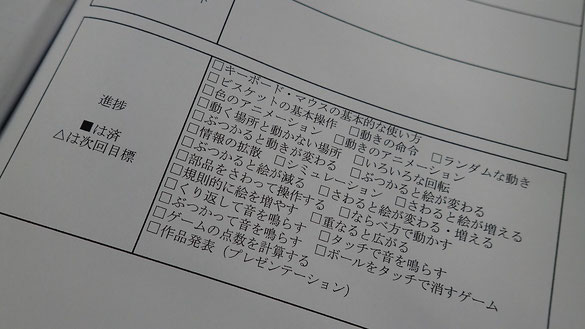 ド
進捗
■は済
△は次回目標
□キーボード・マウスの基本的な使い方
□ビスケットの基本操作 □動きの命令 □ランダムな動き
□色のアニメーション □動きのアニメーション
□動く場所と動かない場所 □いろいろな回転
□ぶつかると動きが変わる □ぶつかると絵が変わる
□情報の拡散 □シミュレーション □さわると絵が増える
□ぶつかると絵が減る □さわると絵が変わる・増える
□部品をさわって操作する □ならべ方で動かす
□規則的に絵を増やす □重なると広がる
□くり返して音を鳴らす □タッチで音を鳴らす
□ぶつかって音を鳴らす □ボールをタッチで消すゲーム
□ゲームの点数を計算する
□作品発表（プレゼンテーション）